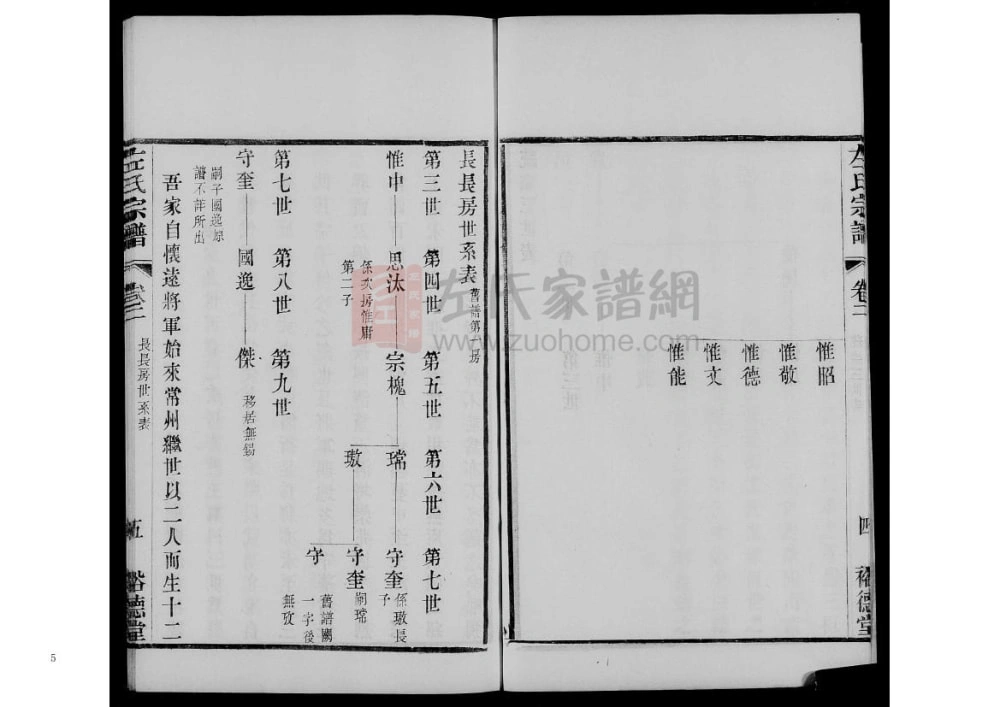 左氏宗譜
卷二
四
裕德堂
惟昭
惟敬
惟德
惟文
惟能
長長房世系表 舊譜第一房
第三世 第四世 第五世 第六世 第七世
惟中 思汰 宗槐 瑺 守奎 係璈長子
係次房惟庸第二子
璈 守奎 嗣瑺
守 舊譜闕一字後無攷
第七世 第八世 第九世
守奎 國逸 傑 移居無錫
嗣子國逸原譜不詳所出
吾家自懷遠將軍始來常州繼世以二人而生十二
左氏宗譜
卷二
長長房世系表
五
裕德堂
左氏家譜網
www.zuohome.com
5